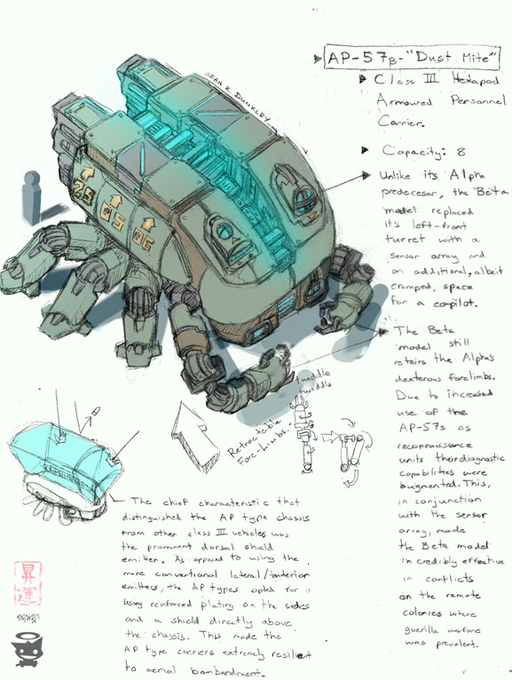 AP-57B - "Dust Mite"
Class III Hexapod
Armoured Personnel
Carrier.
Capacity: 8
Unlike its Alpha
predecesor, the Beta
model replaced
it's left-front
turret with a
sensor array and
an additional, albeit
cramped, space
for a copilot.
The Beta
model still
retains the Alpha's
dexterous forelimbs.
Due to increased
use of the
AP-57s as
reconnaissance
units their diagnostic
capabilities were
augmented. This,
in conjunction
with the sensor
array, made
the Beta model
incredibly effective
in conflicts
on the remote
colonies where
guerilla warfare
was prevalent.
SEAN K. DUNKLEY
25
05
06
twiddle
twiddle
Retractable
Fore-Limbs.
The chief characteristic that
distinguished the AP type chassis
from other class III vehicles was
the prominent dorsal shield
emitter. As opposed to using the
more conventional lateral/anterior
emitters, the AP types opted for
using reinforced plating on the sides
and a shield directly above
the chassis. This made the
AP type carriers extremely resilient
to aerial bombardment.
昇
運